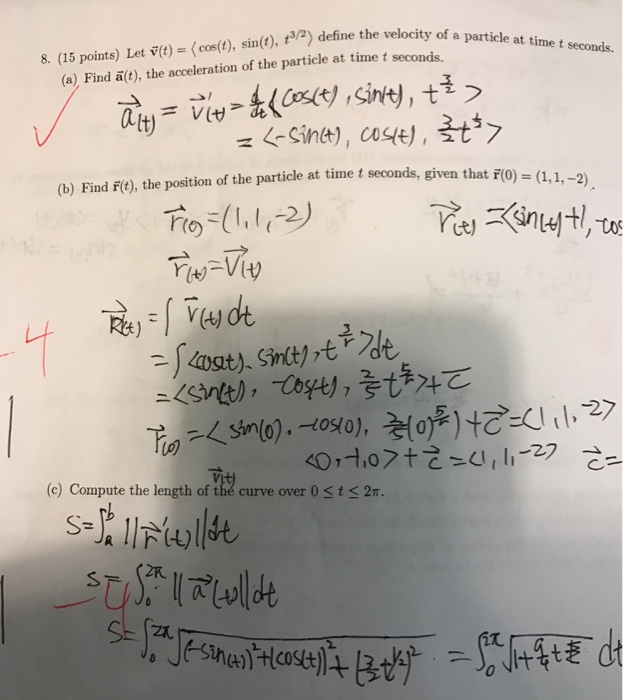 8. (15 points) Let v⃗(t) = ⟨cos(t), sin(t), t^{3/2}⟩ define the velocity of a particle at time t seconds.
(a) Find a⃗(t), the acceleration of the particle at time t seconds.
a⃗(t) = v⃗'(t) = d/dt ⟨cos(t), sin(t), t^{3/2}⟩
= ⟨-sin(t), cos(t), 3/2 t^{1/2}⟩
(b) Find r⃗(t), the position of the particle at time t seconds, given that r⃗(0) = (1, 1, −2).
r⃗(0) = (1, 1, -2)
r⃗(t) = ⟨sin(t)+1, -cos
r⃗(t) = v⃗(t)
R⃗(t) = ∫ v⃗(t) dt
-4
= ∫ ⟨cos(t), sin(t), t^{3/2}⟩ dt
= ⟨sin(t), -cos(t), 2/5 t^{5/2}⟩ + c⃗
r⃗(0) = ⟨sin(0), -cos(0), 2/5 (0)^{5/2}) + c⃗ = ⟨1, 1, -2⟩
⟨0, -1, 0⟩ + c⃗ = ⟨1, 1, -2⟩ c⃗ =
v⃗(t)
(c) Compute the length of the curve over 0 ≤ t ≤ 2π.
S = ∫_a^b ||r⃗'(t)|| dt
S = ∫_0^{2π} ||a⃗(t)|| dt
-4
S = ∫_0^{2π} √((-sin(t))²+(cos(t))²+(3/2 t^{1/2})²) = ∫_0^{2π} √(1+9/4 t) dt